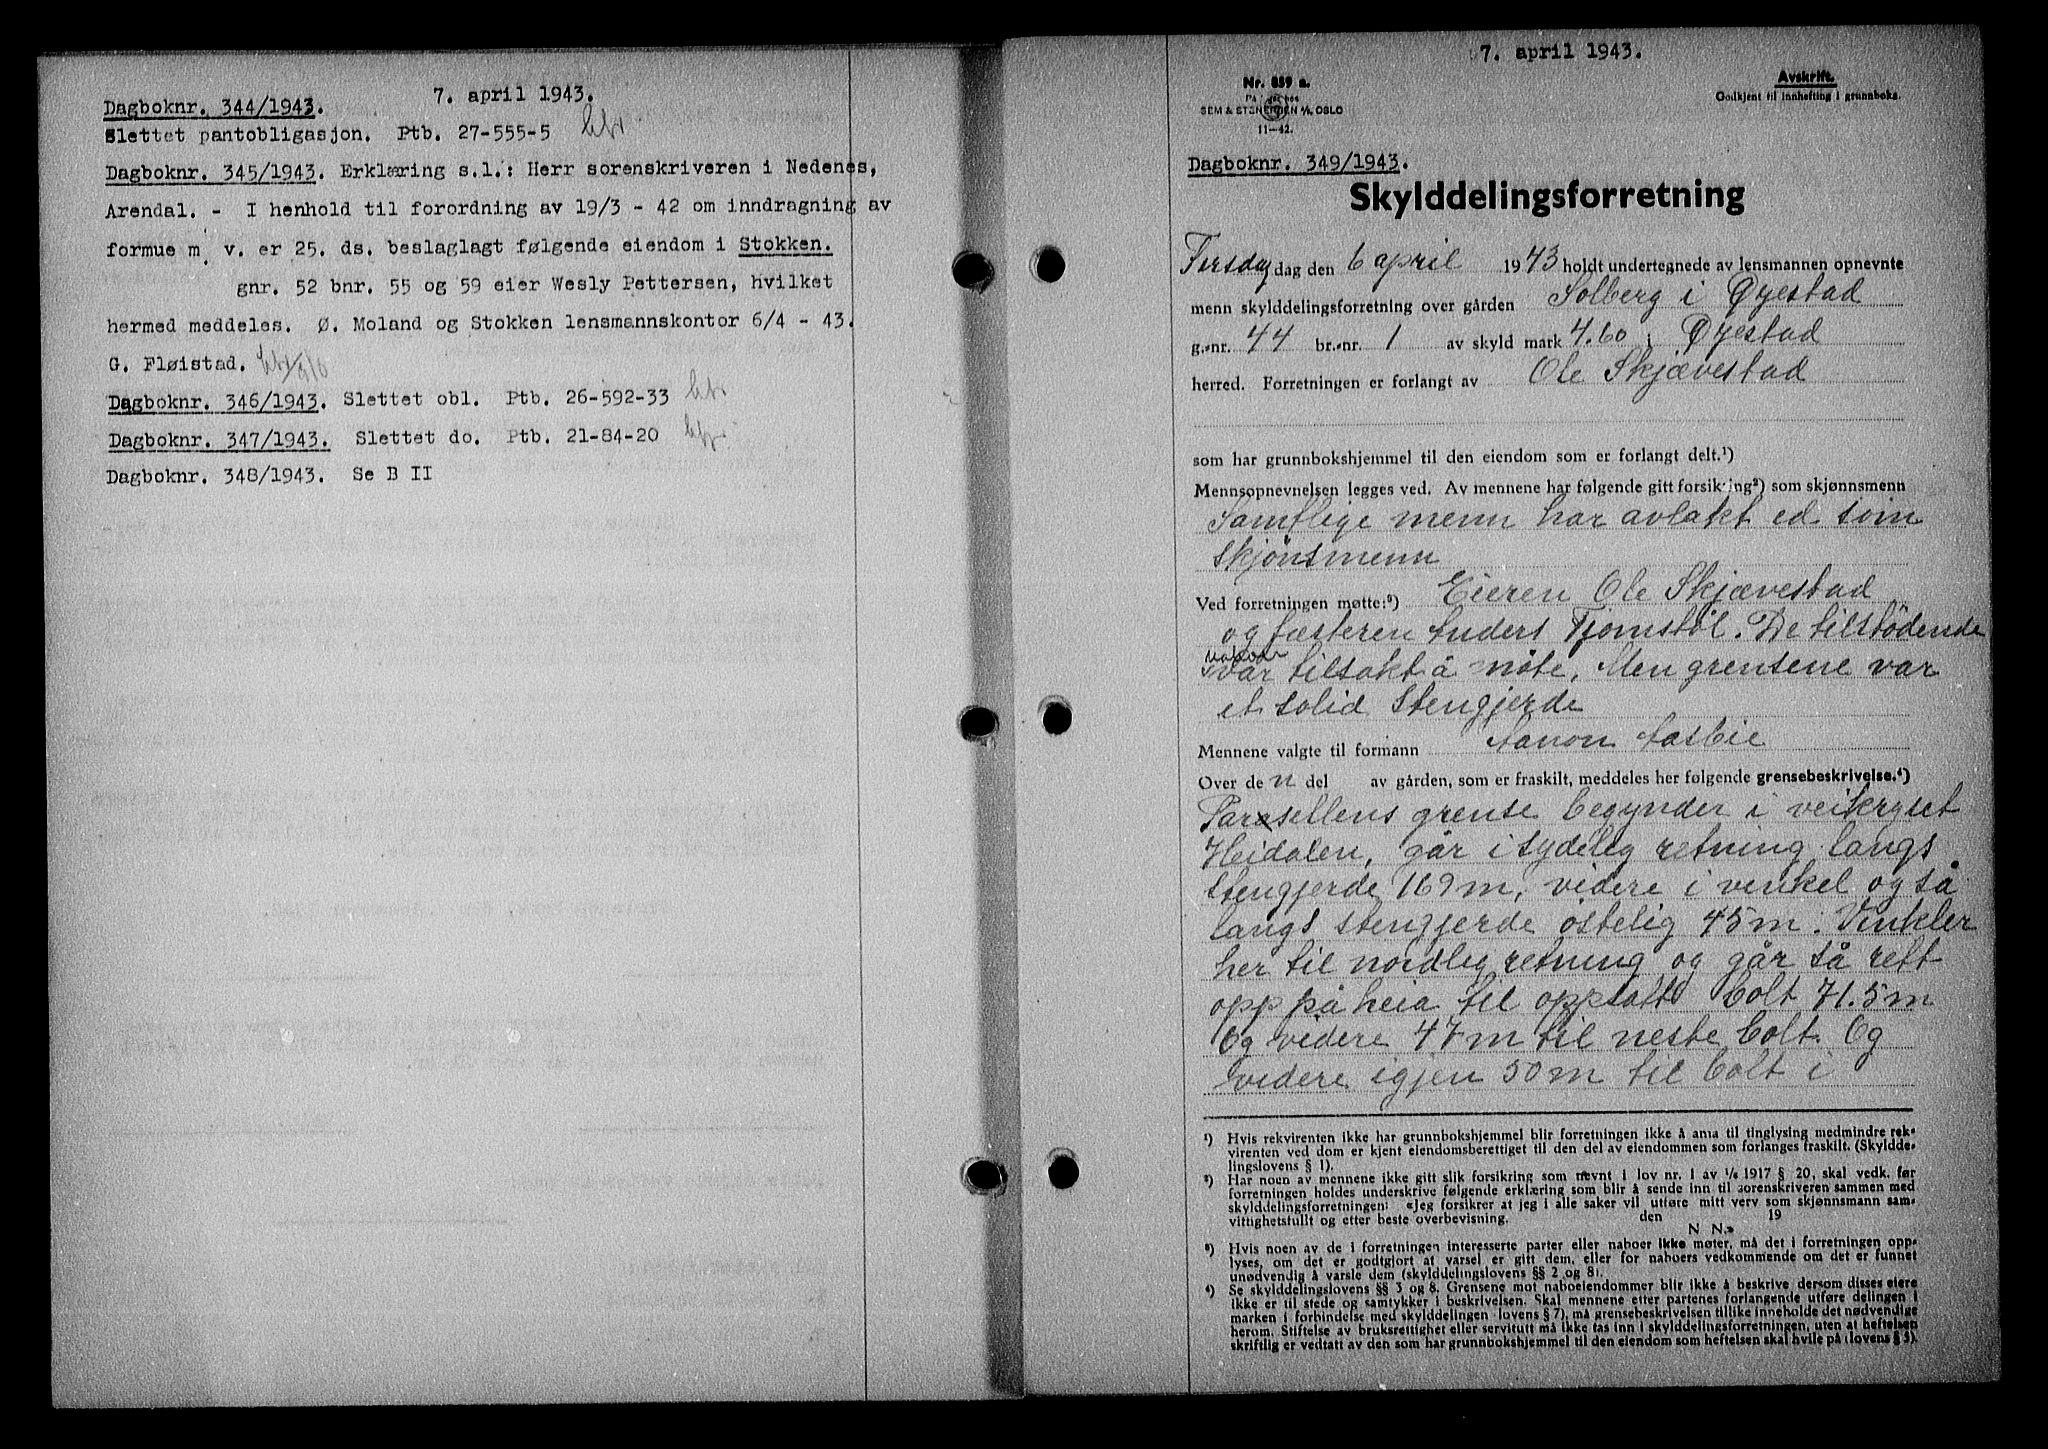 7. april 1943.
Dagboknr. 344/1943.
Slettet pantobligasjon. Ptb. 27-555-5
Dagboknr. 345/1943. Erklæring s.l.: Herr sorenskriveren i Nedenes,
Arendal. - I henhold til forordning av 19/3 - 42 om inndragning av
formue m. v. er 25. ds. beslaglagt følgende eiendom i Stokken.
gnr. 52 bnr. 55 og 59 eier Wesly Pettersen, hvilket
hermed meddeles. Ø. Moland og Stokken lensmannskontor 6/4 - 43.
G. Fløistad.
Dagboknr. 346/1943. Slettet obl. Ptb. 26-592-33
Dagboknr. 347/1943. Slettet do. Ptb. 21-84-20
Dagboknr. 348/1943. Se B II
7. april 1943.
Nr. 859 a.
SEM & STENERSEN A/S, OSLO
11-42.
Avskrift.
Godkjent til innhefting i grunnboka.
Dagboknr. 349/1943.
Skylddelingsforretning
Tirsdag dag den 6 april 1943 holdt undertegnede av lensmannen opnevnte
menn skylddelingsforretning over gården Solberg i Øyestad
g.-nr. 44 br.-nr. 1 av skyld mark 4.60 i Øyestad
herred. Forretningen er forlangt av Ole Skjævestad
som har grunnbokshjemmel til den eiendom som er forlangt delt.¹)
Mennsopnevnelsen legges ved. Av mennene har følgende gitt forsikring²) som skjønnsmenn
Samtlige menn har avlakt ed som
skjönsmenn
Ved forretningen møtte:³) Eieren Ole Skjævestad
og fæsteren Anders Tjomstøl. De tilstödende
var tilsakt å möte, Men grensene var
et solid Stengjerde
Mennene valgte til formann Aanon Aasbie
Over de n del av gården, som er fraskilt, meddeles her følgende grensebeskrivelse.⁴)
Parsellens grense begynder i veikryset
Heidalen, går i sydelig retning langs
stengjerde 169 m, videre i vinkel også
langs stengjerde östelig 45 m. Vinkler
her til nordlig retning og går så rett
opp på heia til oppsatt bolt 71.5 m
Og videre 47 m til neste bolt. Og
videre igjen 50 m til bolt i
¹) Hvis rekvirenten ikke har grunnbokshjemmel blir forretningen ikke å anta til tinglysing medmindre rek-
virenten ved dom er kjent eiendomsberettiget til den del av eiendommen som forlanges fraskilt. (Skyldde-
lingslovens § 1).
²) Har noen av mennene ikke gitt slik forsikring som nevnt i lov nr. 1 av 1/6 1917 § 20, skal vedk. før
forretningen holdes underskrive følgende erklæring som blir å sende inn til sorenskriveren sammen med
skylddelingsforretningen: «Jeg forsikrer at jeg i alle saker vil utføre mitt verv som skjønnsmann sam-
vittighetsfullt og etter beste overbevisning. den 19
N. N.»
³) Hvis noen av de i forretningen interesserte parter eller naboer ikke møter, må det i forretningen opp-
lyses, om det er godtgjort at varsel er gitt dem, eller for naboers vedkommende om det er funnet
unødvendig å varsle dem (skylddelingslovens §§ 2 og 8).
⁴) Se skylddelingslovens §§ 3 og 8. Grensene mot naboeiendommer blir ikke å beskrive dersom disses eiere
ikke er til stede og samtykker i beskrivelsen. Skal mennene etter partenes forlangende utføre delingen i
marken i forbindelse med skylddelingen (lovens § 7), må grensebeskrivelsen tillike inneholde det nødvendige
herom. Stiftelse av bruksrettighet eller servitutt må ikke tas inn i skylddelingsforretningen, uten at heftelsen
skriftlig er vedtatt av den som har grunnbokshjemmel til den eiendom som heftelsen skal hvile på (lovens § 5).